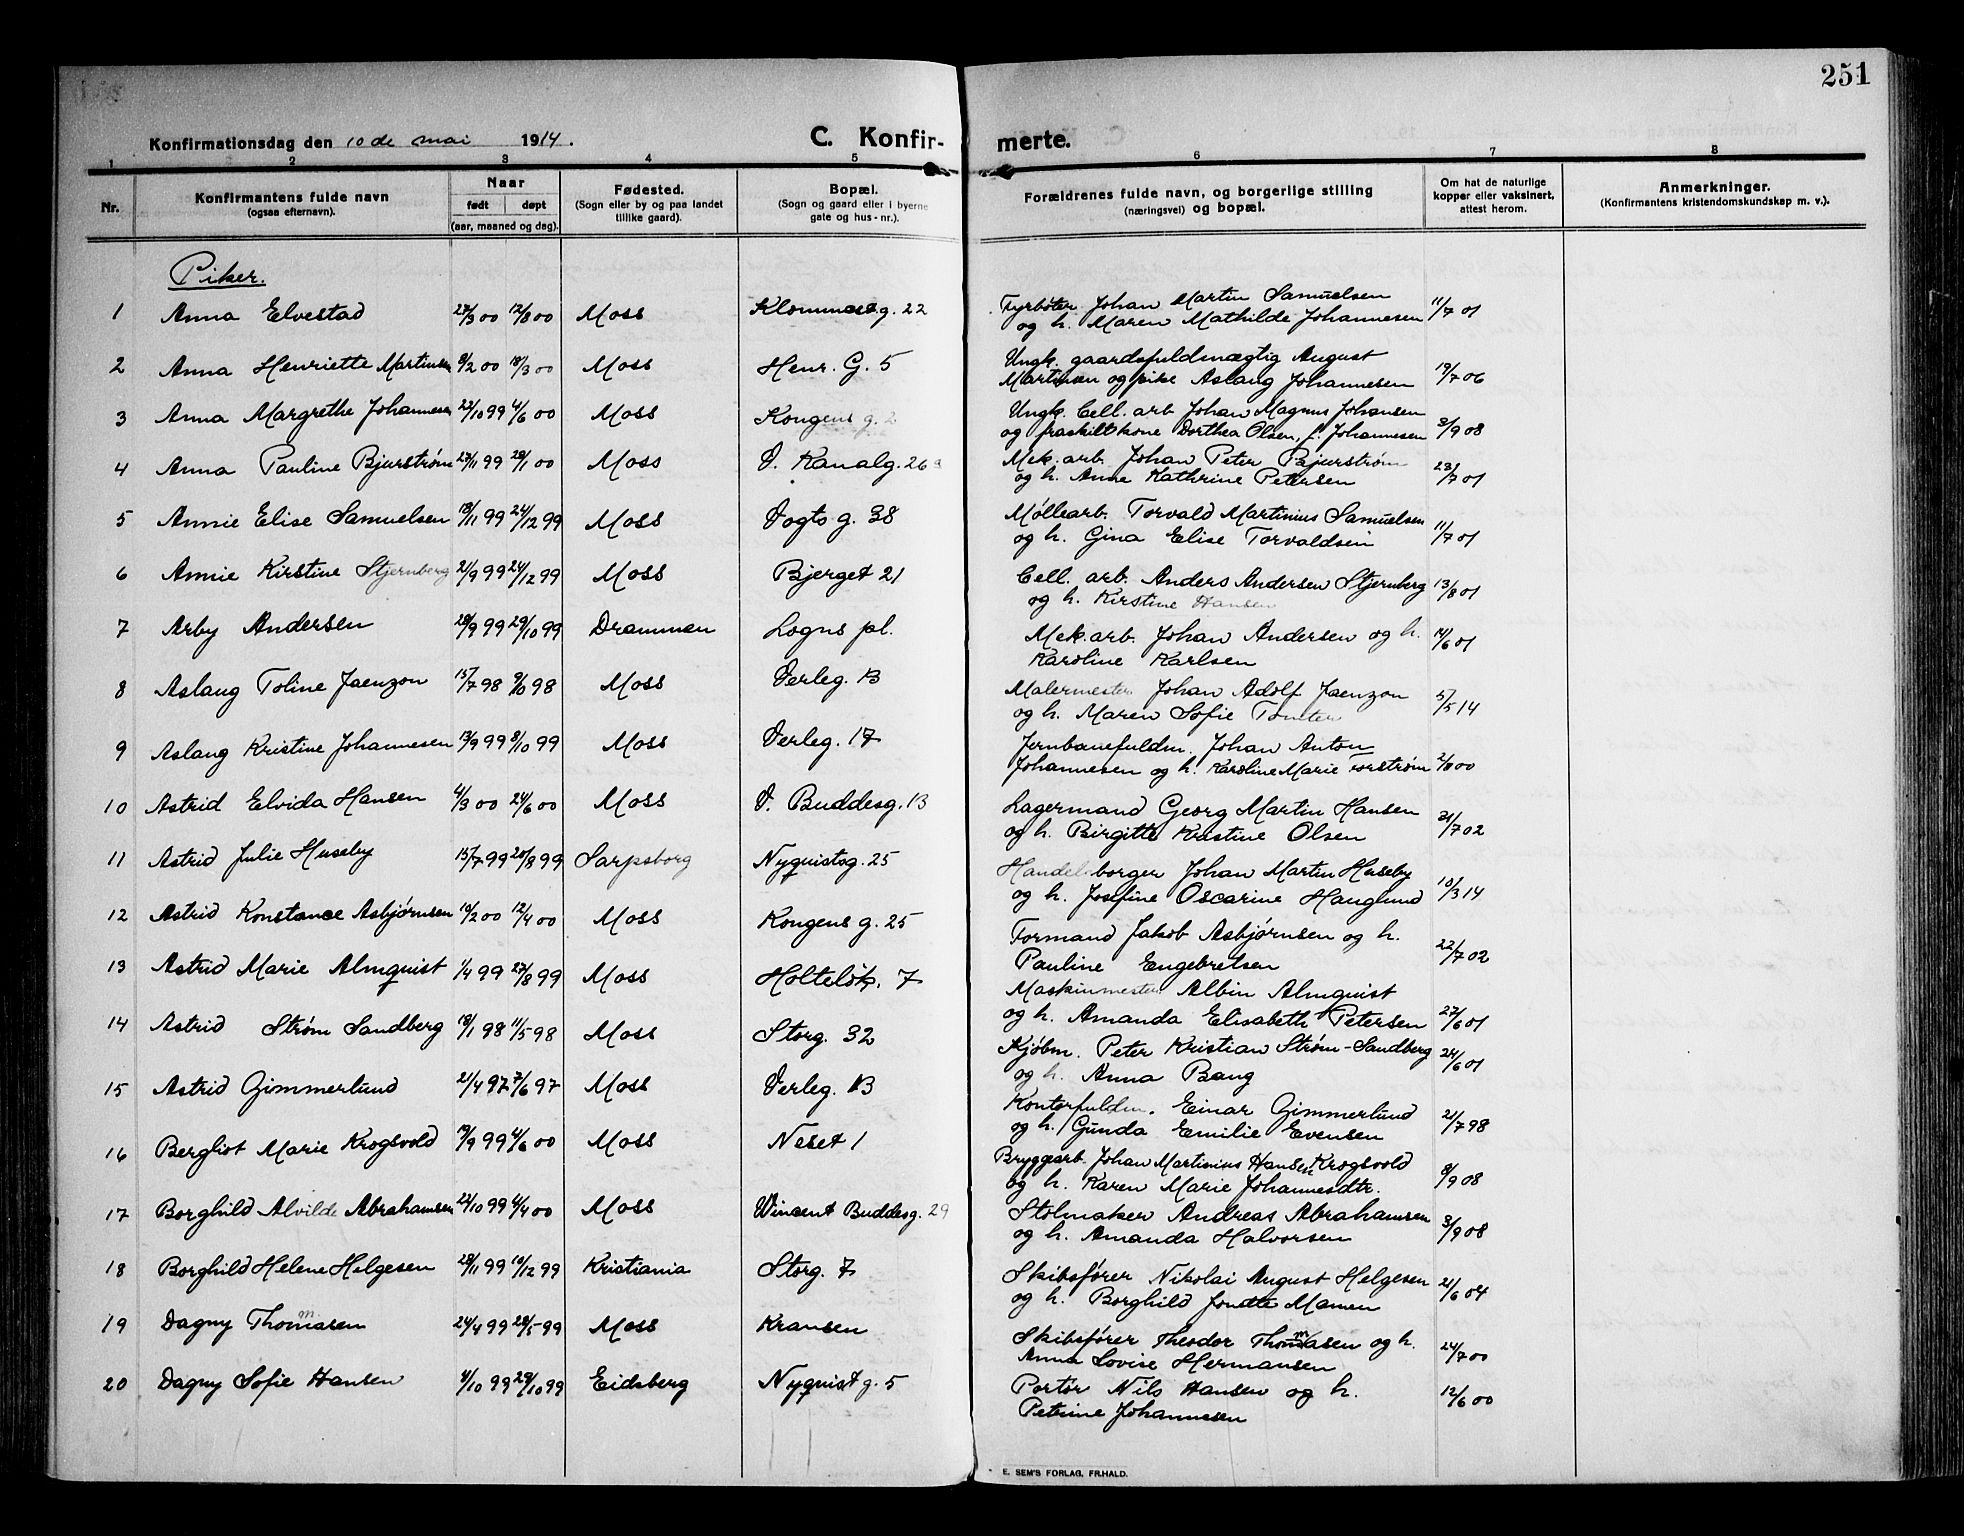 251
Konfirmationsdag den 10 de mai 1914. C. Konfir- merte.
1 2 3 4 5 6 7 8
Nr. Konfirmantens fulde navn (ogsaa efternavn). Naar født døpt (aar, maaned og dag). Fødested. (Sogn eller by og paa landet tillike gaard). Bopæl. (Sogn og gaard eller i byerne gate og hus-nr.). Forældrenes fulde navn, og borgerlige stilling (næringsvei) og bopæl. Om hat de naturlige kopper eller vaksinert, attest herom. Anmerkninger. (Konfirmantens kristendomskundskap m. v.).
Piker.
1 Anna Elvestad 27/3 00 12/8 00 Moss g. 22 Fyrbøter Johan Martin Samuelsen 11/7 01
og h. Maren Mathilde Johannesen
2 Anna Henriette Martinsen 8/2 00 18/3 00 Moss Henr. G. 5 Ungk. gaardsfuldmægtig August 19/7 06
Martinsen og pike Aslaug Johannesen
3 Anna Margrethe Johannesen 22/10 99 4/6 00 Moss Kongens g. 2 Ungk. Cell. arb. Johan Magnus Johansen 3/9 08
og fraskilt kone Dorthea Olsen, f. Johannesen
4 Anna Pauline Bjurstrøm 27/11 99 28/1 00 Moss V. Kanalg. 26 Mek. arb. Johan Peter Bjurstrøm 23/7 01
og h. Anne Kathrine Petersen
5 Annie Elise Samuelsen 18/11 99 24/12 99 Moss Vogts g. 38 Møllearb. Torvald Martinius Samuelsen 11/7 01
og h. Gina Elise Torvaldsen
6 Annie Kirstine Stjernberg 21/9 99 24/12 99 Moss Bjerget 21 Cell. arb. Anders Andersen Stjernberg 13/8 01
og h. Kirstine Hansen
7 Arby Andersen 28/9 99 29/10 99 Drammen Logns pl. Mek. arb. Johan Andersen og h. 14/6 01
Karoline Karlsen
8 Aslaug Toline Jaenzon 15/7 98 9/10 98 Moss Verleg. 13 Malermester Johan Adolf Jaenzon 5/5 14
og h. Maren Sofie Tomter
9 Aslaug Kristine Johannesen 13/9 99 8/10 99 Moss Verleg. 17 Jernbanefuldm. Johan Anton 2/8 00
Johannesen og h. Karoline Marie Forstrøm
10 Astrid Elvida Hansen 4/3 00 24/6 00 Moss V. Buddesg. 13 Lagermand Georg Martin Hansen 31/7 02
og h. Birgitte Kristine Olsen
11 Astrid Julie Huseby 15/7 99 20/8 99 Sarpsborg Nyquistsg. 25 Handelsborger Johan Martin Huseby 10/3 14
og h. Josefine Oscarine Hauglund
12 Astrid Konstance Asbjørnsen 10/2 00 12/4 00 Moss Kongens g. 25 Formand Jakob Asbjørnsen og h. 22/7 02
Pauline Engebretsen
13 Astrid Marie Almquist 1/4 99 27/8 99 Moss Holteløk. 7 Maskinmester Albin Almquist 27/6 01
og h. Amanda Elisabeth Petersen
14 Astrid Strøm Sandberg 18/1 98 11/5 98 Moss Storg. 32 Kjøbm. Peter Kristian Strøm-Sandberg 24/6 01
og h. Anna Bang
15 Astrid Gimmerlund 21/4 97 7/6 97 Moss Verleg. 13 Kontorfuldm. Einar Gimmerlund 21/7 98
og h. Gunda Emilie Evensen
16 Bergliot Marie Krogsvold 19/9 99 4/6 00 Moss Neset 1 Bryggearb. Johan Martinius Hansen Krogsvold 8/9 08
og h. Karen Marie Johannesdtr.
17 Borghild Alvilde Abrahamsen 22/10 99 4/4 00 Moss Wincent Buddesg. 29 Stolmaker Andreas Abrahamsen 3/9 08
og h. Amanda Halvorsen
18 Borghild Helene Helgesen 28/11 99 10/12 99 Kristiania Storg. 7 Skibsfører Nikolai August Helgesen 21/6 04
og h. Borghild Mamen
19 Dagny Thommasen 24/4 99 28/5 99 Moss Kransen Skibsfører Theodor Thommasen og h. 24/7 00
Anna Lovise Hermansen
20 Dagny Sofie Hansen 4/10 99 29/10 99 Eidsberg Nyquist g. 5 Portør Nils Hansen og h. 12/6 00
Petrine Johannesen
E. SEM'S FORLAG, FR.HALD.